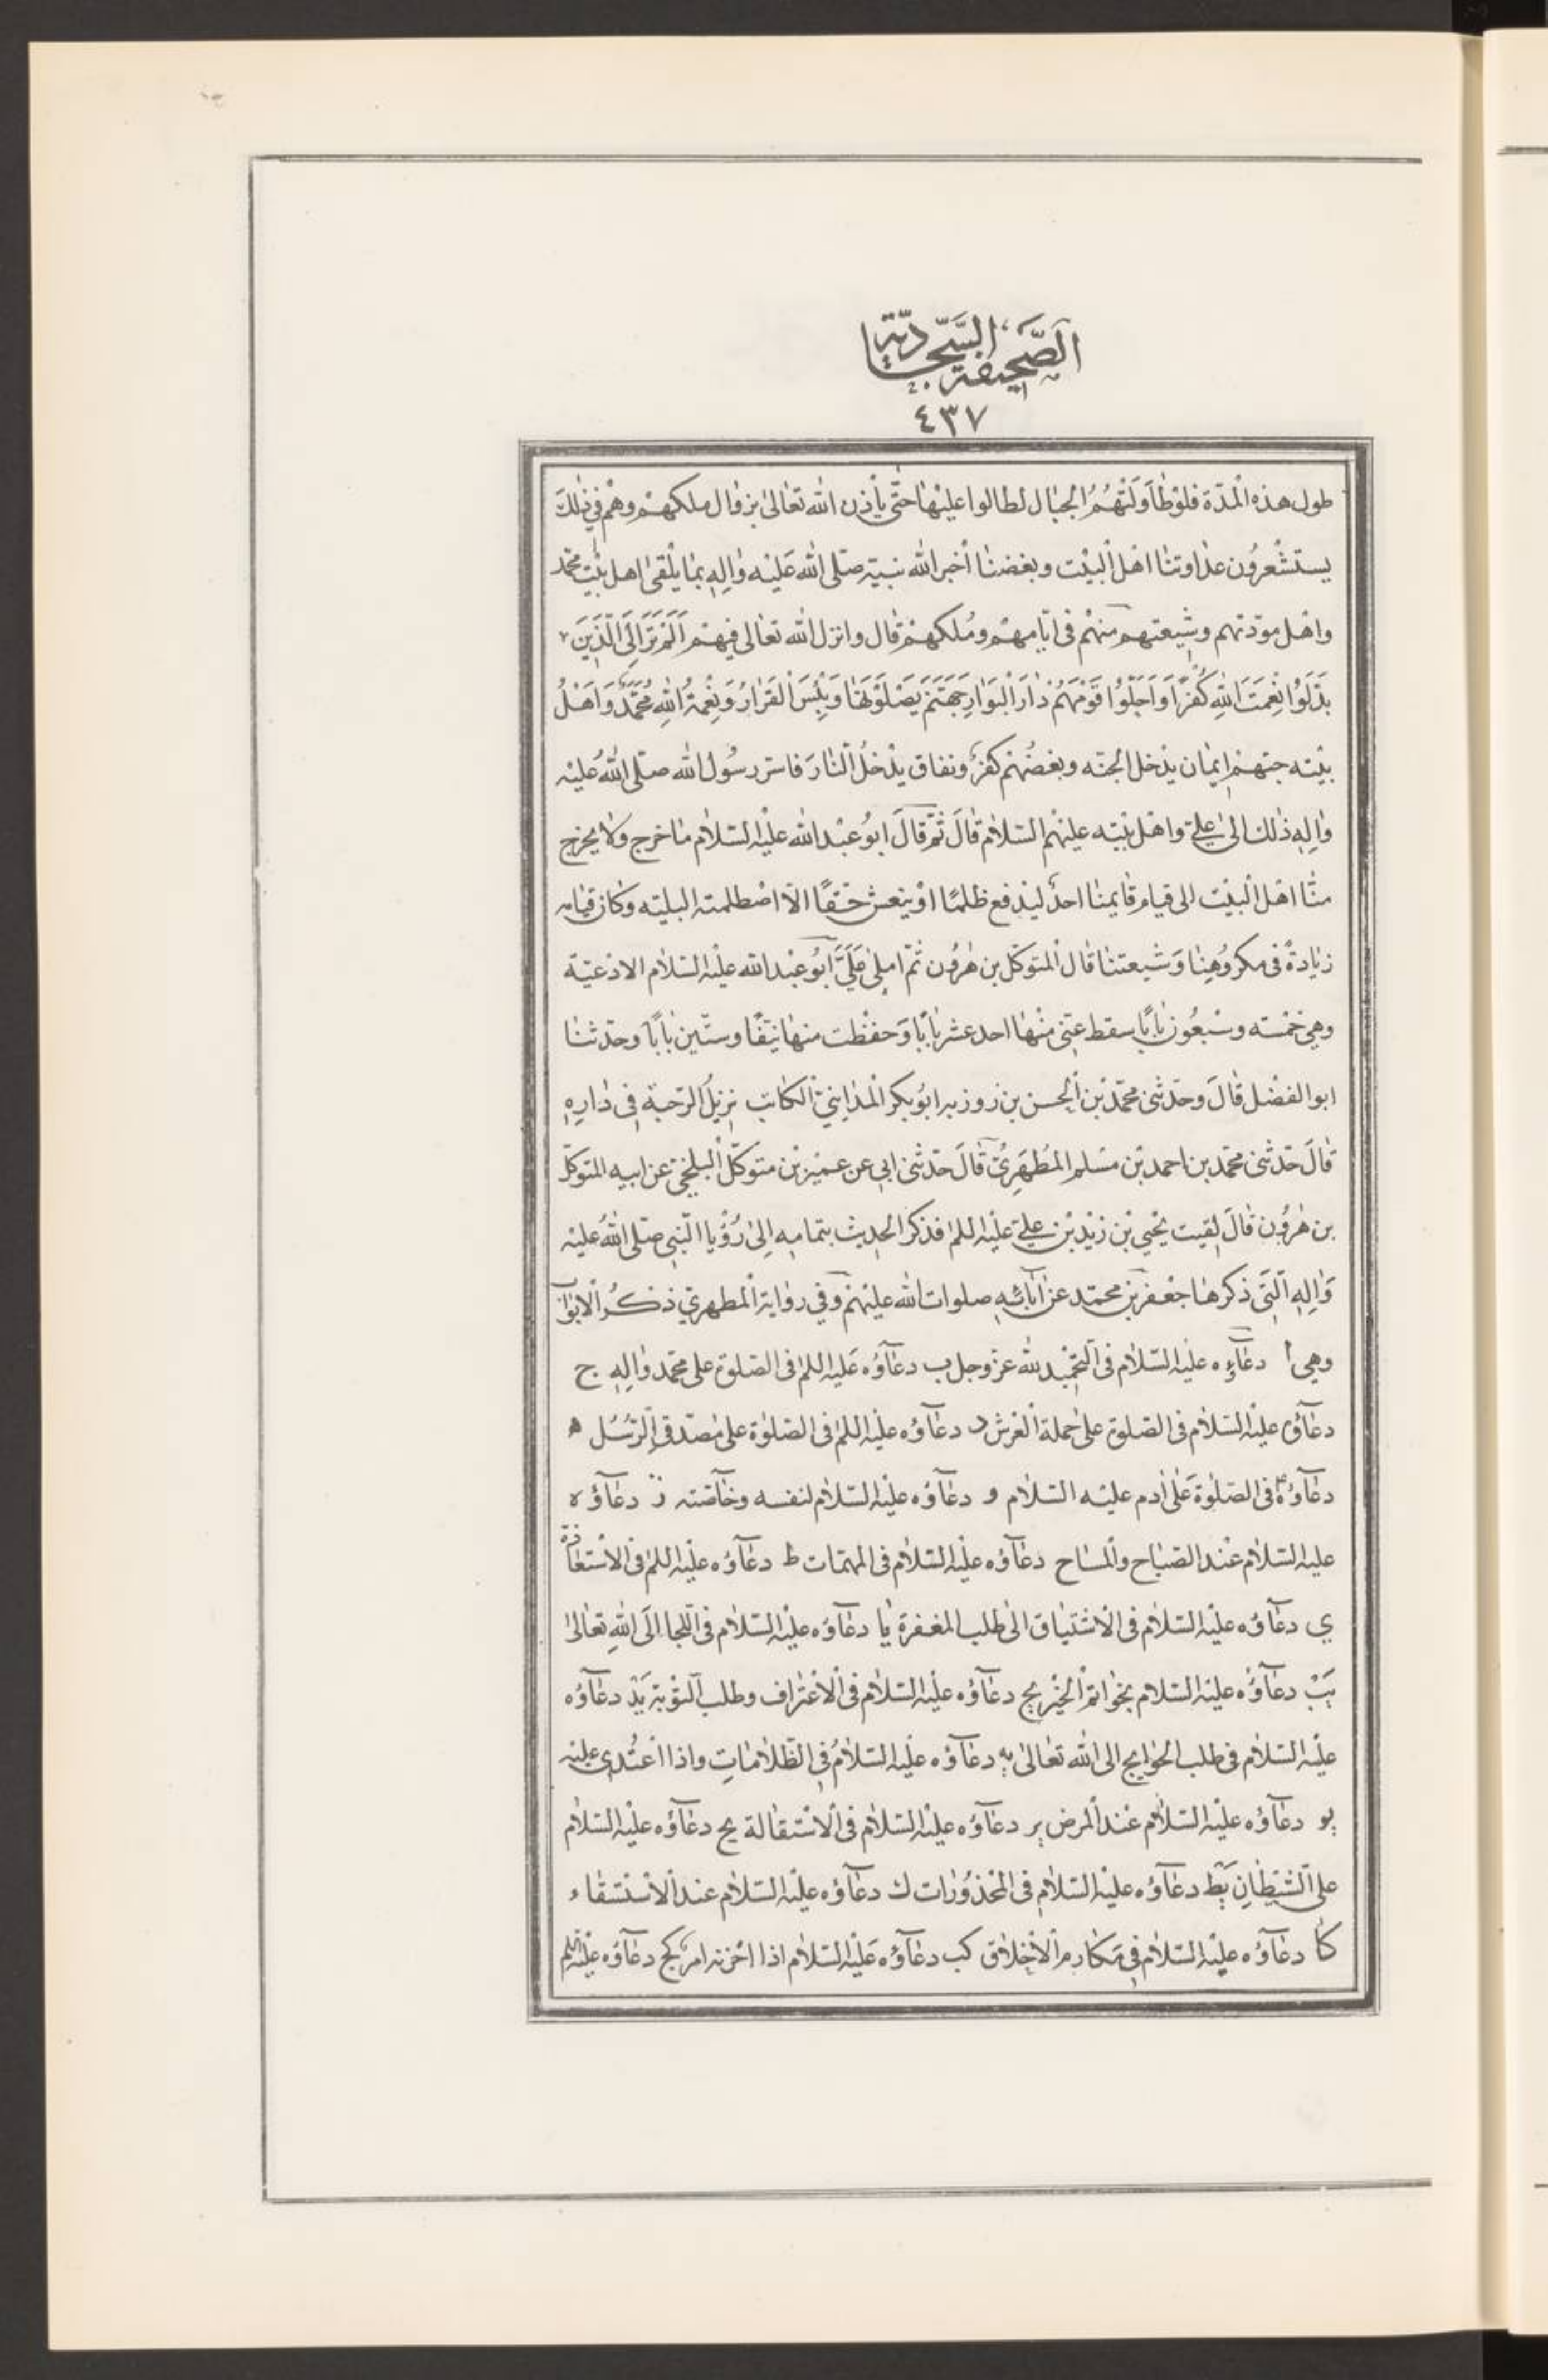 الصحيفة السجادية
٤٣٧
طول هذه المدّة فلو طاولتهم الجبال لطالوا عليها حتّى يأذن الله تعالى بزوال ملكهم وهم في ذلك
يستشعرون عداوتنا اهل البيت وبغضنا أخبر الله نبيّه صلى الله عليه واله بما يلقى اهل بيت محمد
واهل مودّتهم وشيعتهم منهم فى ايّامهم وملكهم قال وانزل الله تعالى فيهم اَلَمْ تَرَ اِلَى الَّذِينَ
بَدَّلُوا نِعْمَتَ اللهِ كُفْرًا وَاَحَلُّوا قَوْمَهُمْ دٰارَ الْبَوٰارِ جَهَنَّمَ يَصْلَوْنَهٰا وَبِئْسَ الْقَرٰارُ وَنِعْمَةُ اللهِ مُحَمَّدٌ وَاَهْلُ
بيته حبّهم ايمان يدخل الجنّه وبغضهم كفر ونفاق يدخل النّار فاسر رسول الله صلّى الله عليه
واله ذلك الى علىّ واهل بيته عليهم السلام قال ثمّ قال ابو عبد الله عليه السّلام ما خرج ولا يخرج
منّا اهل البيت الى قيام قايمنا احدٌ ليدفع ظلمًا او ينعش حقًّا الّا اصطلمته البليّه وكان قيامه
زيادةً فى مكروهنا وشيعتنا قال المتوكّل بن هرون ثمّ املى علىّ ابو عبد الله عليه السّلام الادعيّة
وهي خمسه وسبعون بابًا سقط عنّى منها احد عشر بابًا وحفظت منها نيّفًا وستّين بابًا وحدّثنا
ابو الفضل قال وحدّثنى محمّد بن الحسن بن روزبه ابو بكر المدائنيّ الكاتب نزيل الرّحبة في داره
قال حدّثنى محمّد بن احمد بن مسلم المطهريّ قال حدّثنى ابى عن عمير بن متوكّل البلخيّ عن ابيه المتوكّل
بن هرون قال لقيت يحيى بن زيد بن علىّ عليه السلم فذكر الحديث بتمامه الى رؤيا النّبى صلّى الله عليه
واله الّتى ذكرها جعفر بن محمّد عن آبائه صلوات الله عليهم وفي رواية المطهري ذكر الابواب
وهي ا دعآؤه عليه السّلام فى التّحميد لله عزّ وجل ب دعآؤه عليه السلم فى الصّلوة على محمّد واله ج
دعآؤه عليه السّلام فى الصّلوة على حملة العرش د دعآؤه عليه السلم فى الصّلوة على مصدّقى الرّسل ه
دعآؤه ع فى الصّلوة على ادم عليه السّلام و دعآؤه عليه السّلام لنفسه وخآصّته ز دعآؤه
عليه السّلام عند الصّباح والمساح دعآؤه عليه السّلام فى المهمّات ط دعآؤه عليه السلم فى الاستعاذة
ي دعآؤه عليه السّلام فى الاشتياق الى طلب المغفرة يا دعآؤه عليه السّلام فى اللّجا الى الله تعالى
يب دعآؤه عليه السّلام بخواتم الخير يج دعآؤه عليه السّلام فى الاعتراف وطلب التّوبة يد دعآؤه
عليه السّلام فى طلب الحوايج الى الله تعالى يه دعآؤه عليه السّلام فى الظّلامات واذا اعتدى عليه
يو دعآؤه عليه السّلام عند المرض يز دعآؤه عليه السّلام فى الاستقالة يح دعآؤه عليه السّلام
على الشيطان يط دعآؤه عليه السّلام فى المحذورات ك دعآؤه عليه السّلام عند الاستسقاء
كا دعآؤه عليه السّلام في مكارم الاخلاق كب دعآؤه عليه السّلام اذا احزنه امر كج دعآؤه عليه السلم